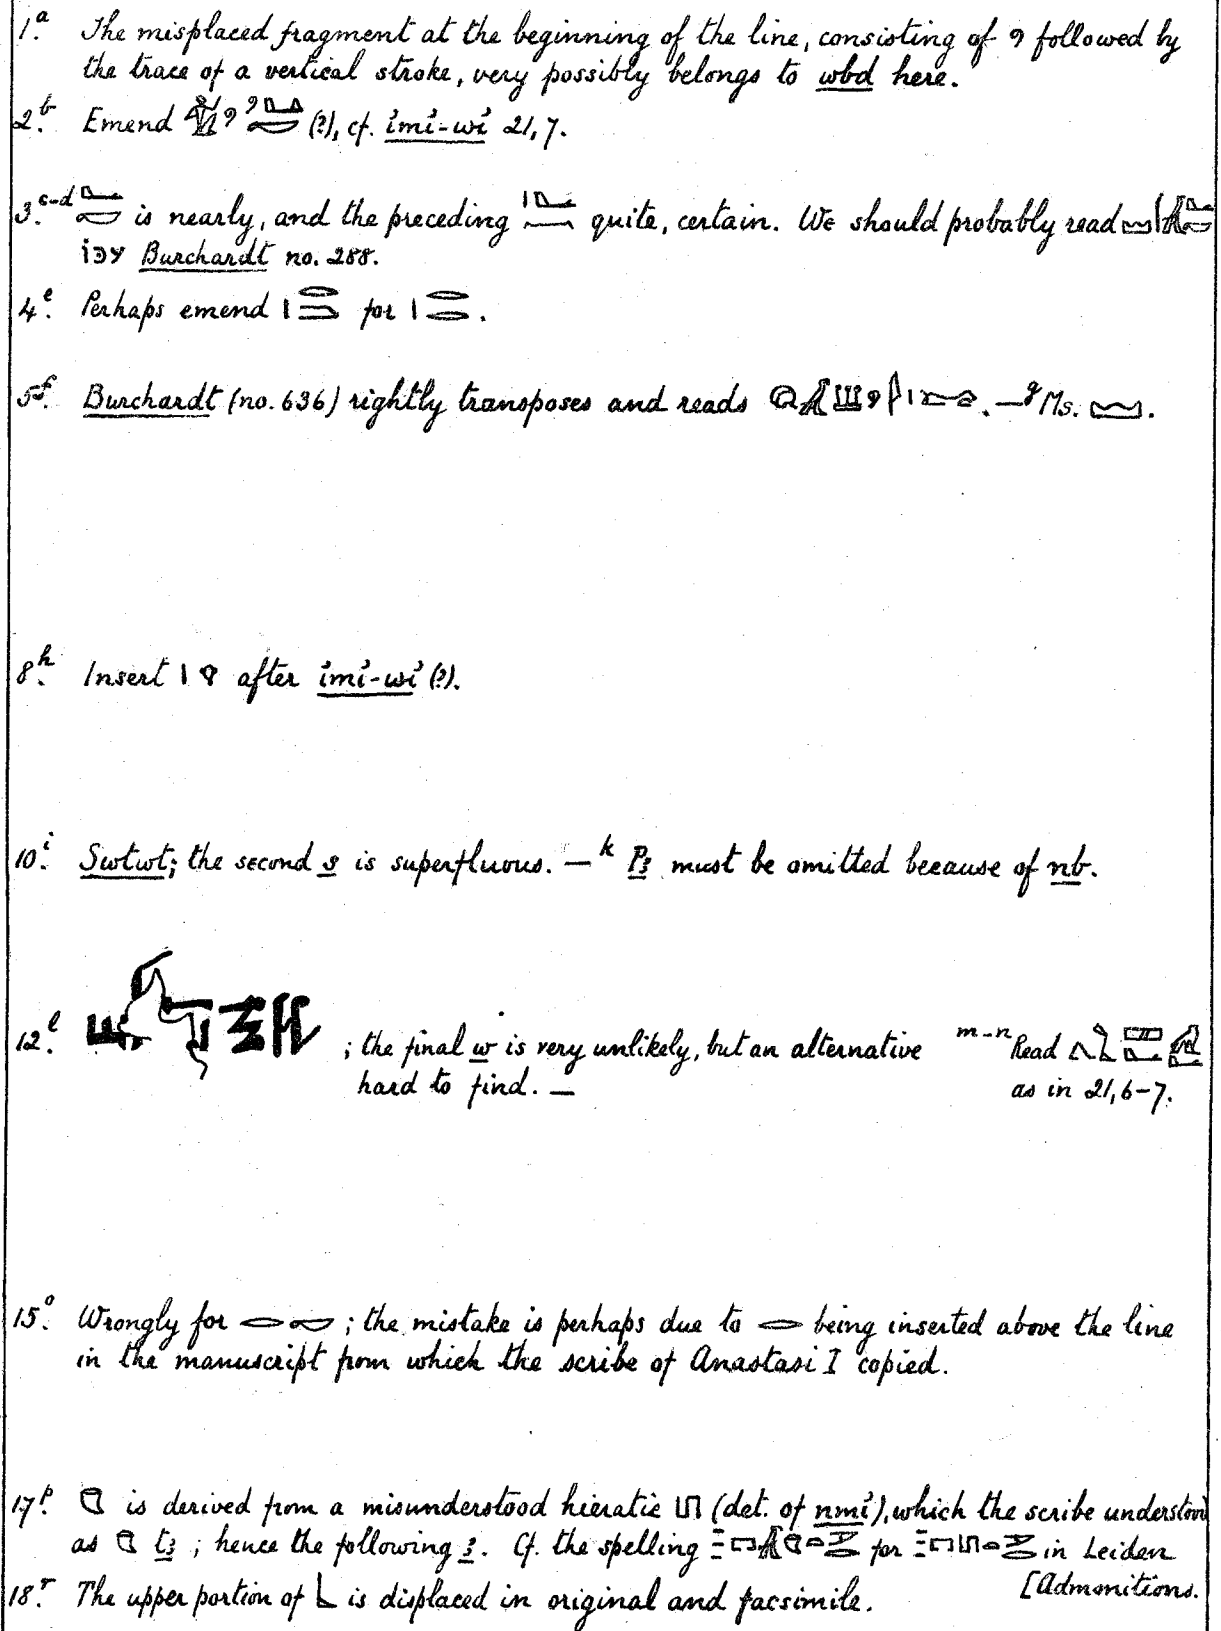 1.ᵃ The misplaced fragment at the beginning of the line, consisting of 𓏲 followed by
the trace of a vertical stroke, very possibly belongs to wbd here.
2.ᵇ Emend (?), cf. ỉmỉ-wỉ 21, 7.
3.ᶜ⁻ᵈ is nearly, and the preceding quite, certain. We should probably read
Burchardt no. 288.
4.ᵉ Perhaps emend for .
5.ᶠ Burchardt (no. 636) rightly transposes and reads . —ᵍ Ms. 𓈉.
8.ʰ Insert after ỉmỉ-wỉ (?).
10.ⁱ Swtwt; the second s is superfluous. — ᵏ Pꜣ must be omitted because of nb.
12.ˡ ; the final w is very unlikely, but an alternative
hard to find. —
ᵐ⁻ⁿ Read
as in 21, 6-7.
15.ᵒ Wrongly for 𓂋𓎟 ; the mistake is perhaps due to 𓂋 being inserted above the line
in the manuscript from which the scribe of Anastasi I copied.
17.ᵖ is derived from a misunderstood hieratic (det. of nmỉ), which the scribe understood
as tꜣ ; hence the following ꜣ. Cf. the spelling for in Leiden
[Admonitions.
18.ʳ The upper portion of is displaced in original and facsimile.